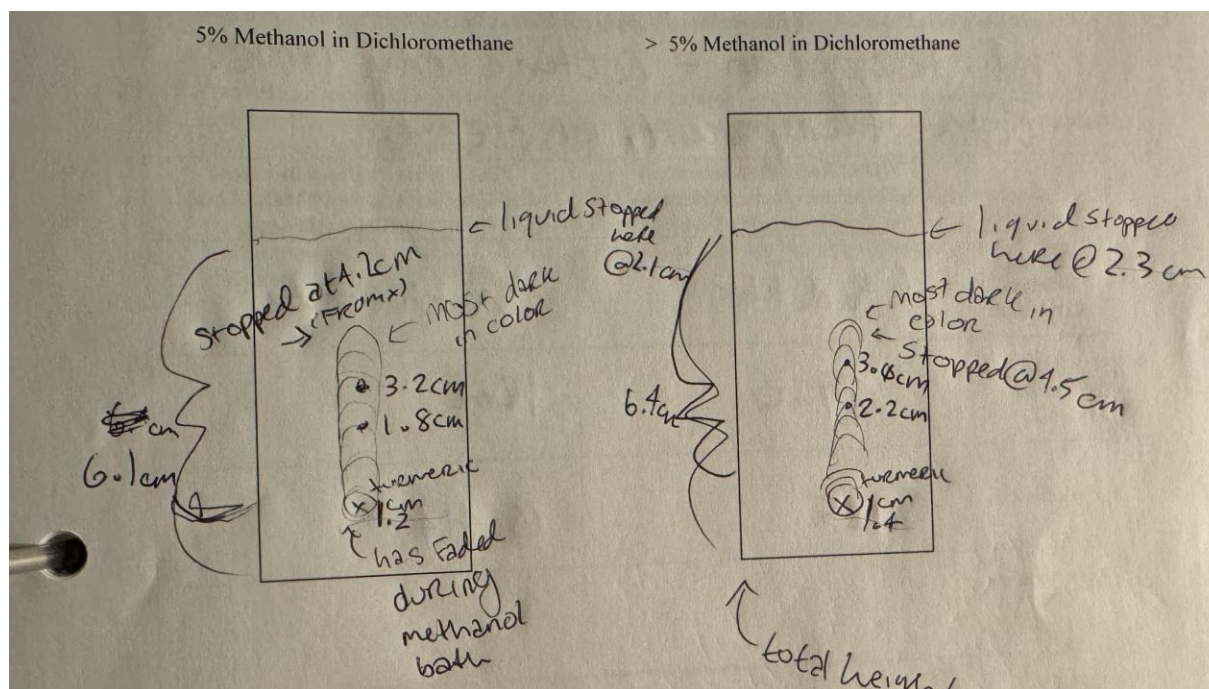 5% Methanol in Dichloromethane
> 5% Methanol in Dichloromethane
← liquid stopped
here
@2.1cm
stopped at 4.2cm
(FROM x)
← most dark
in color
3.2cm
1.8cm
cm
6.1cm
turmeric
x 1cm
1.2
has Faded
during
methanol
bath
← liquid stopped
here @ 2.3 cm
most dark in
color
stopped@4.5cm
2.2cm
6.4cm
turmeric
x 1cm
1.4
total